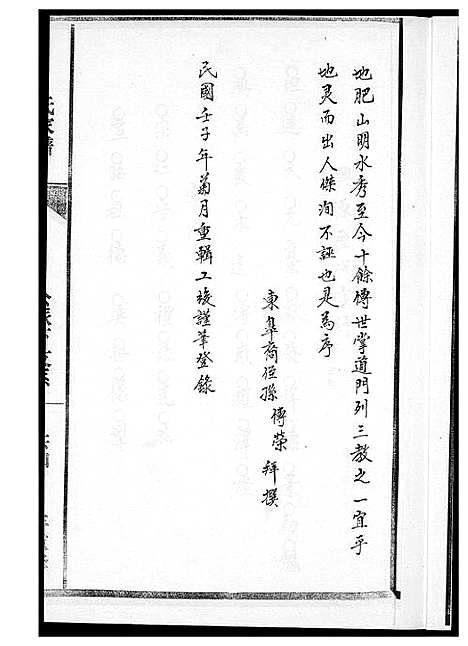 地肥山明水秀至今十餘傳世掌道門列三教之一宜乎
地灵而出人傑洵不誣也是為序
東阜裔侄孫傳榮拜撰
民國壬子年菊月重輯工竣謹筆登錄